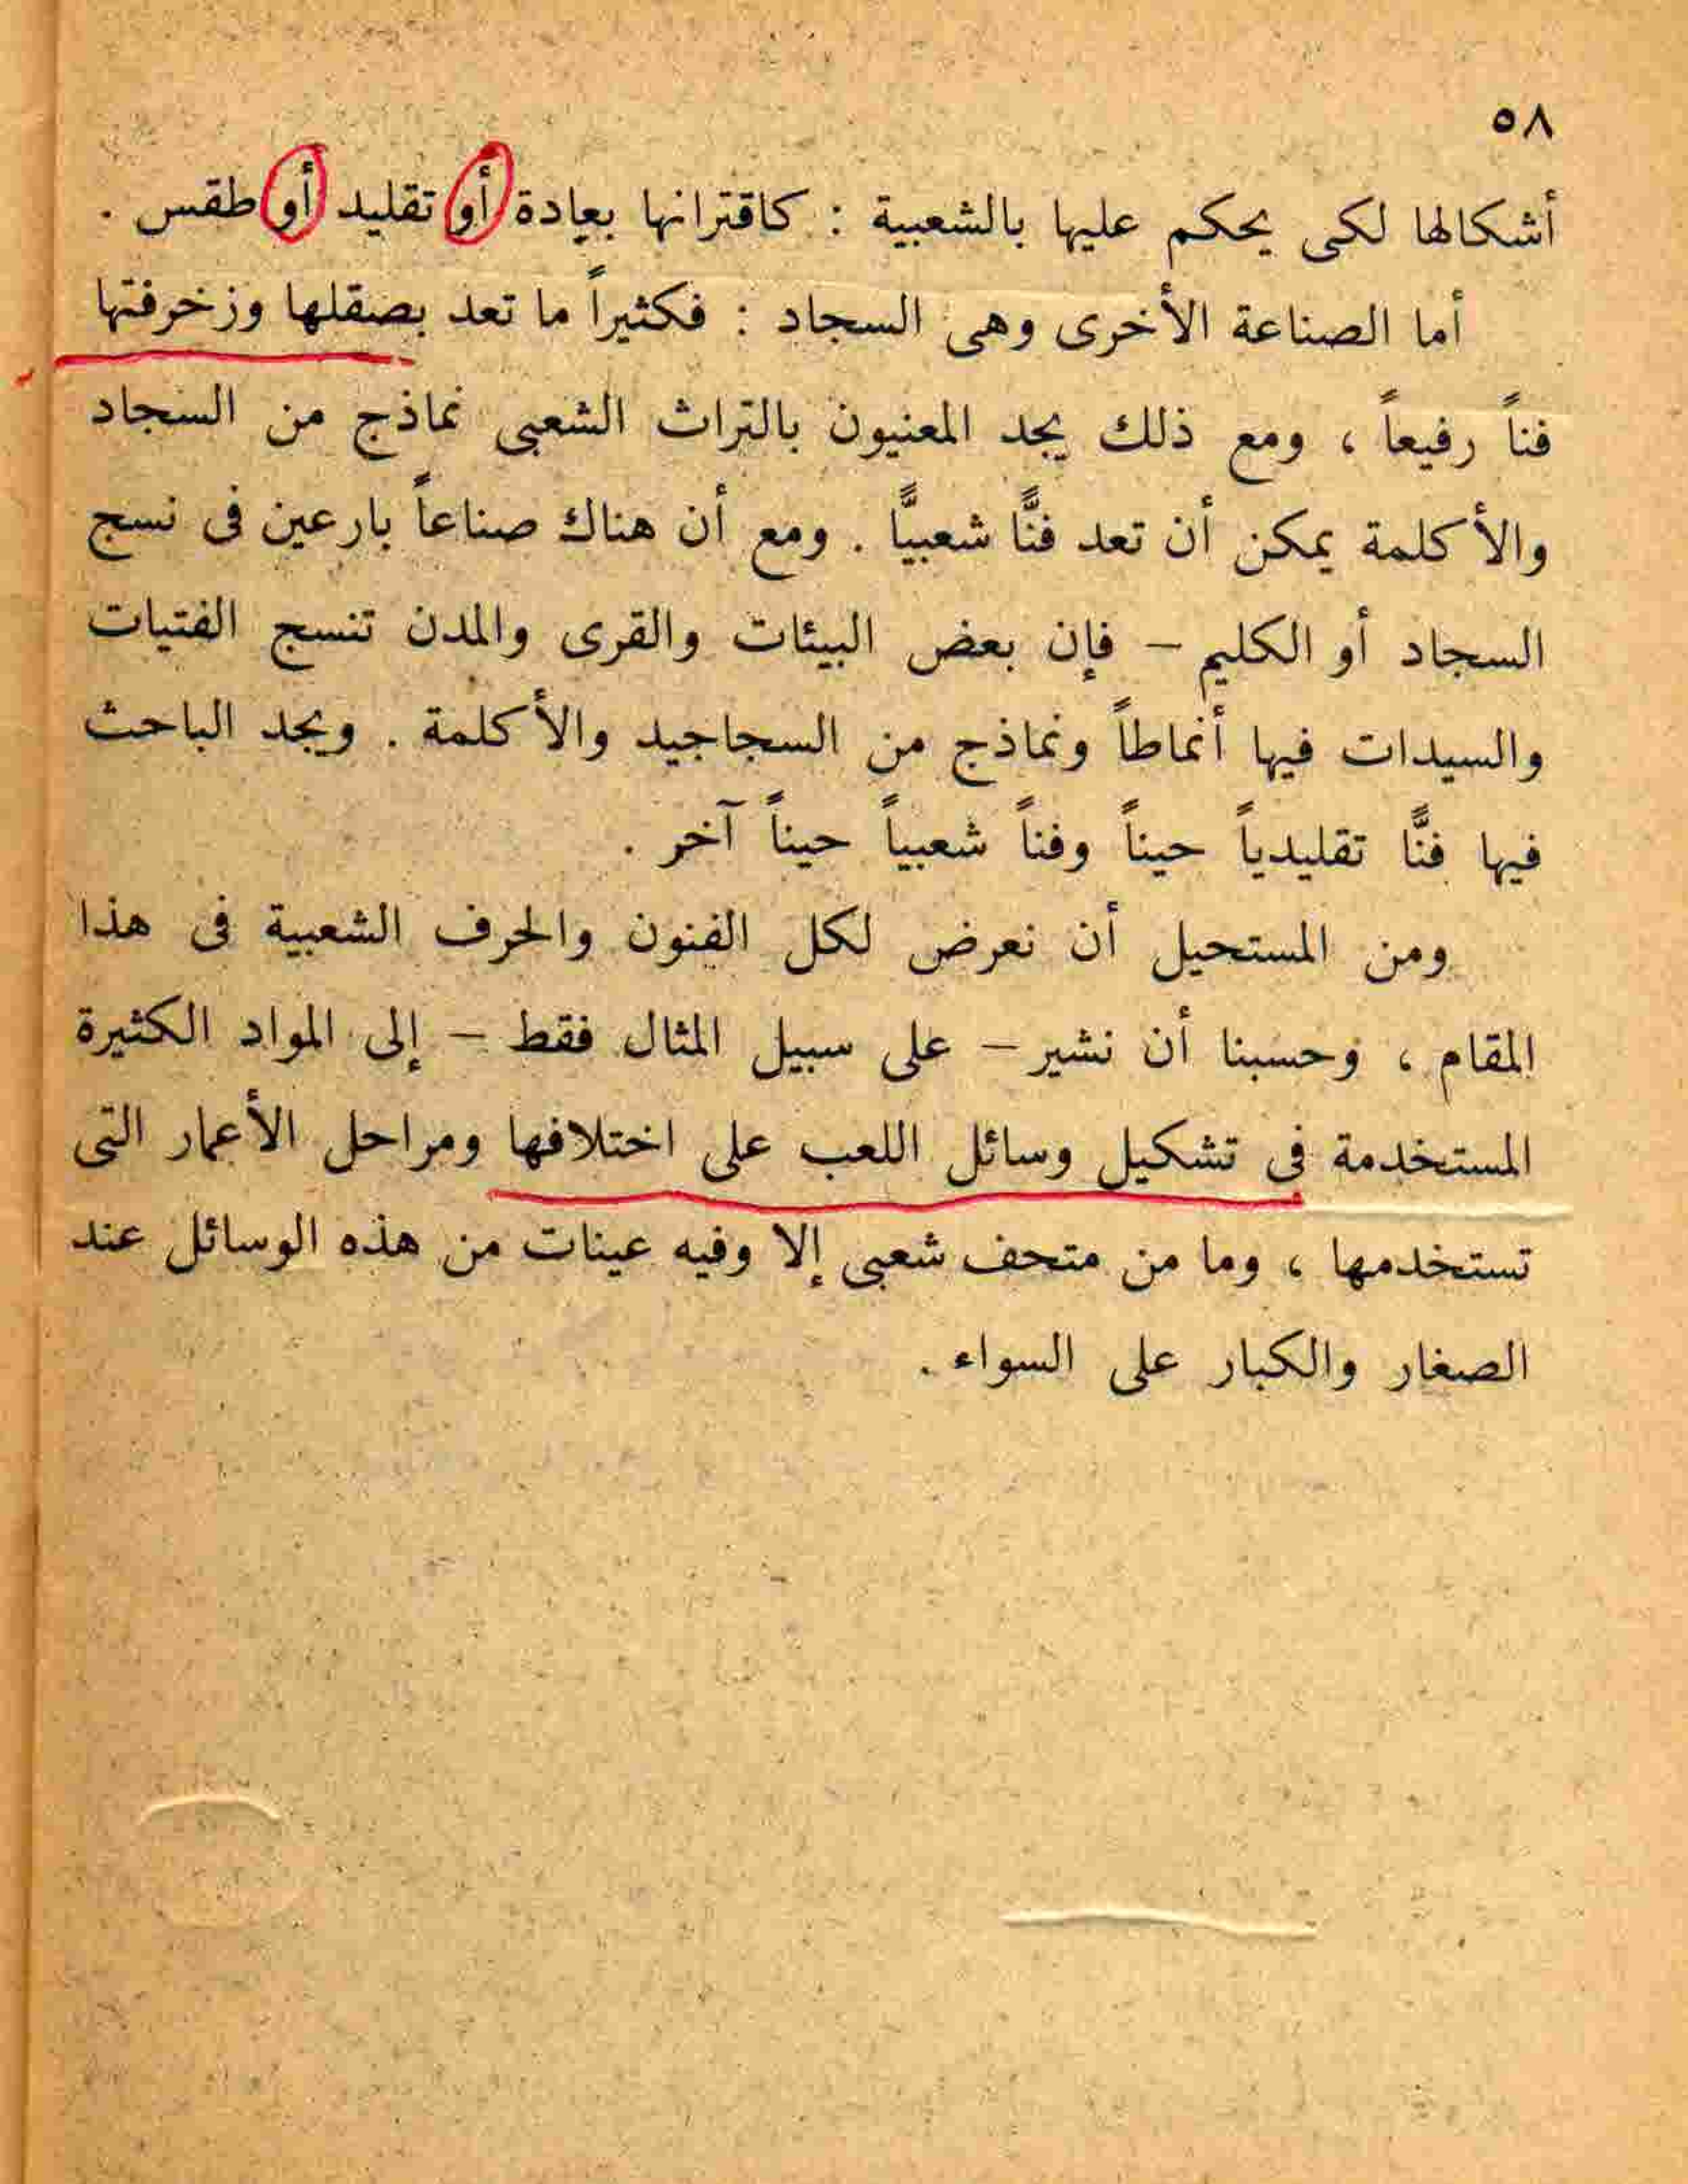 ٥٨
أشكالها لكى يحكم عليها بالشعبية : كاقترانها بعادة أو تقليد أو طقس .
أما الصناعة الأخرى وهى السجاد : فكثيراً ما تعد بصقلها وزخرفتها
فناً رفيعاً ، ومع ذلك يجد المعنيون بالتراث الشعبى نماذج من السجاد
والأكلمة يمكن أن تعد فنًّا شعبيًّا . ومع أن هناك صناعاً بارعين فى نسج
السجاد أو الكليم – فإن بعض البيئات والقرى والمدن تنسج الفتيات
والسيدات فيها أنماطاً ونماذج من السجاجيد والأكلمة . ويجد الباحث
فيها فنًّا تقليدياً حيناً وفناً شعبياً حيناً آخر .
ومن المستحيل أن نعرض لكل الفنون والحرف الشعبية فى هذا
المقام ، وحسبنا أن نشير – على سبيل المثال فقط – إلى المواد الكثيرة
المستخدمة فى تشكيل وسائل اللعب على اختلافها ومراحل الأعمار التى
تستخدمها ، وما من متحف شعبى إلا وفيه عينات من هذه الوسائل عند
الصغار والكبار على السواء .